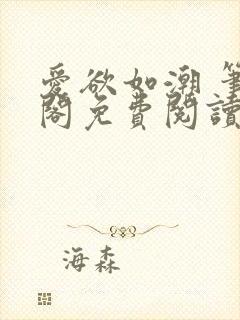 愛欲如潮 筆
閣免費閱讀
海森